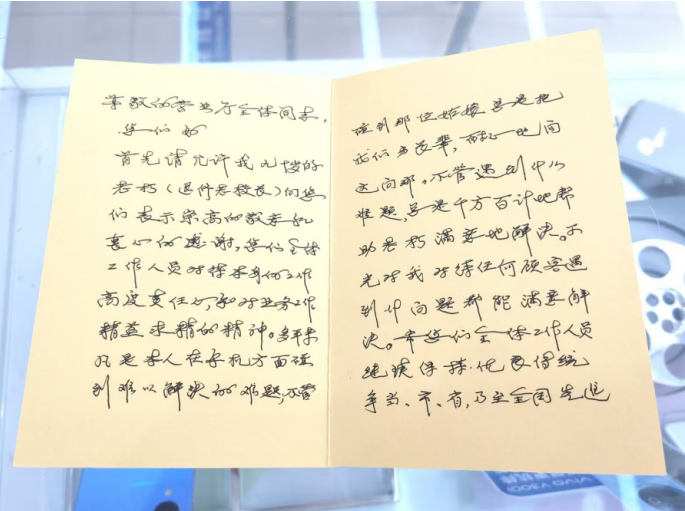 尊敬的营业厅全体同志,
您们好
首先请允许我九十岁的
老朽(退休老校长)向您
们表示崇高的敬意和
衷心的感谢,您们全体
工作人员对待本身的工作
高度责任心,和对业务工作
精益求精的精神。多年来
凡是本人在手机方面碰
到难以解决的难题,不管
碰到那位姑娘总是把
我们当长辈,
这问那。不管遇到什么
难题,总是千方百计地帮
助老朽满意地解决。不
光对我对待任何顾客遇
到什问题都能满意解
决。希您们全体工作人员
继续保持优良传统
争当、市、省,乃至全国先进
VIVO